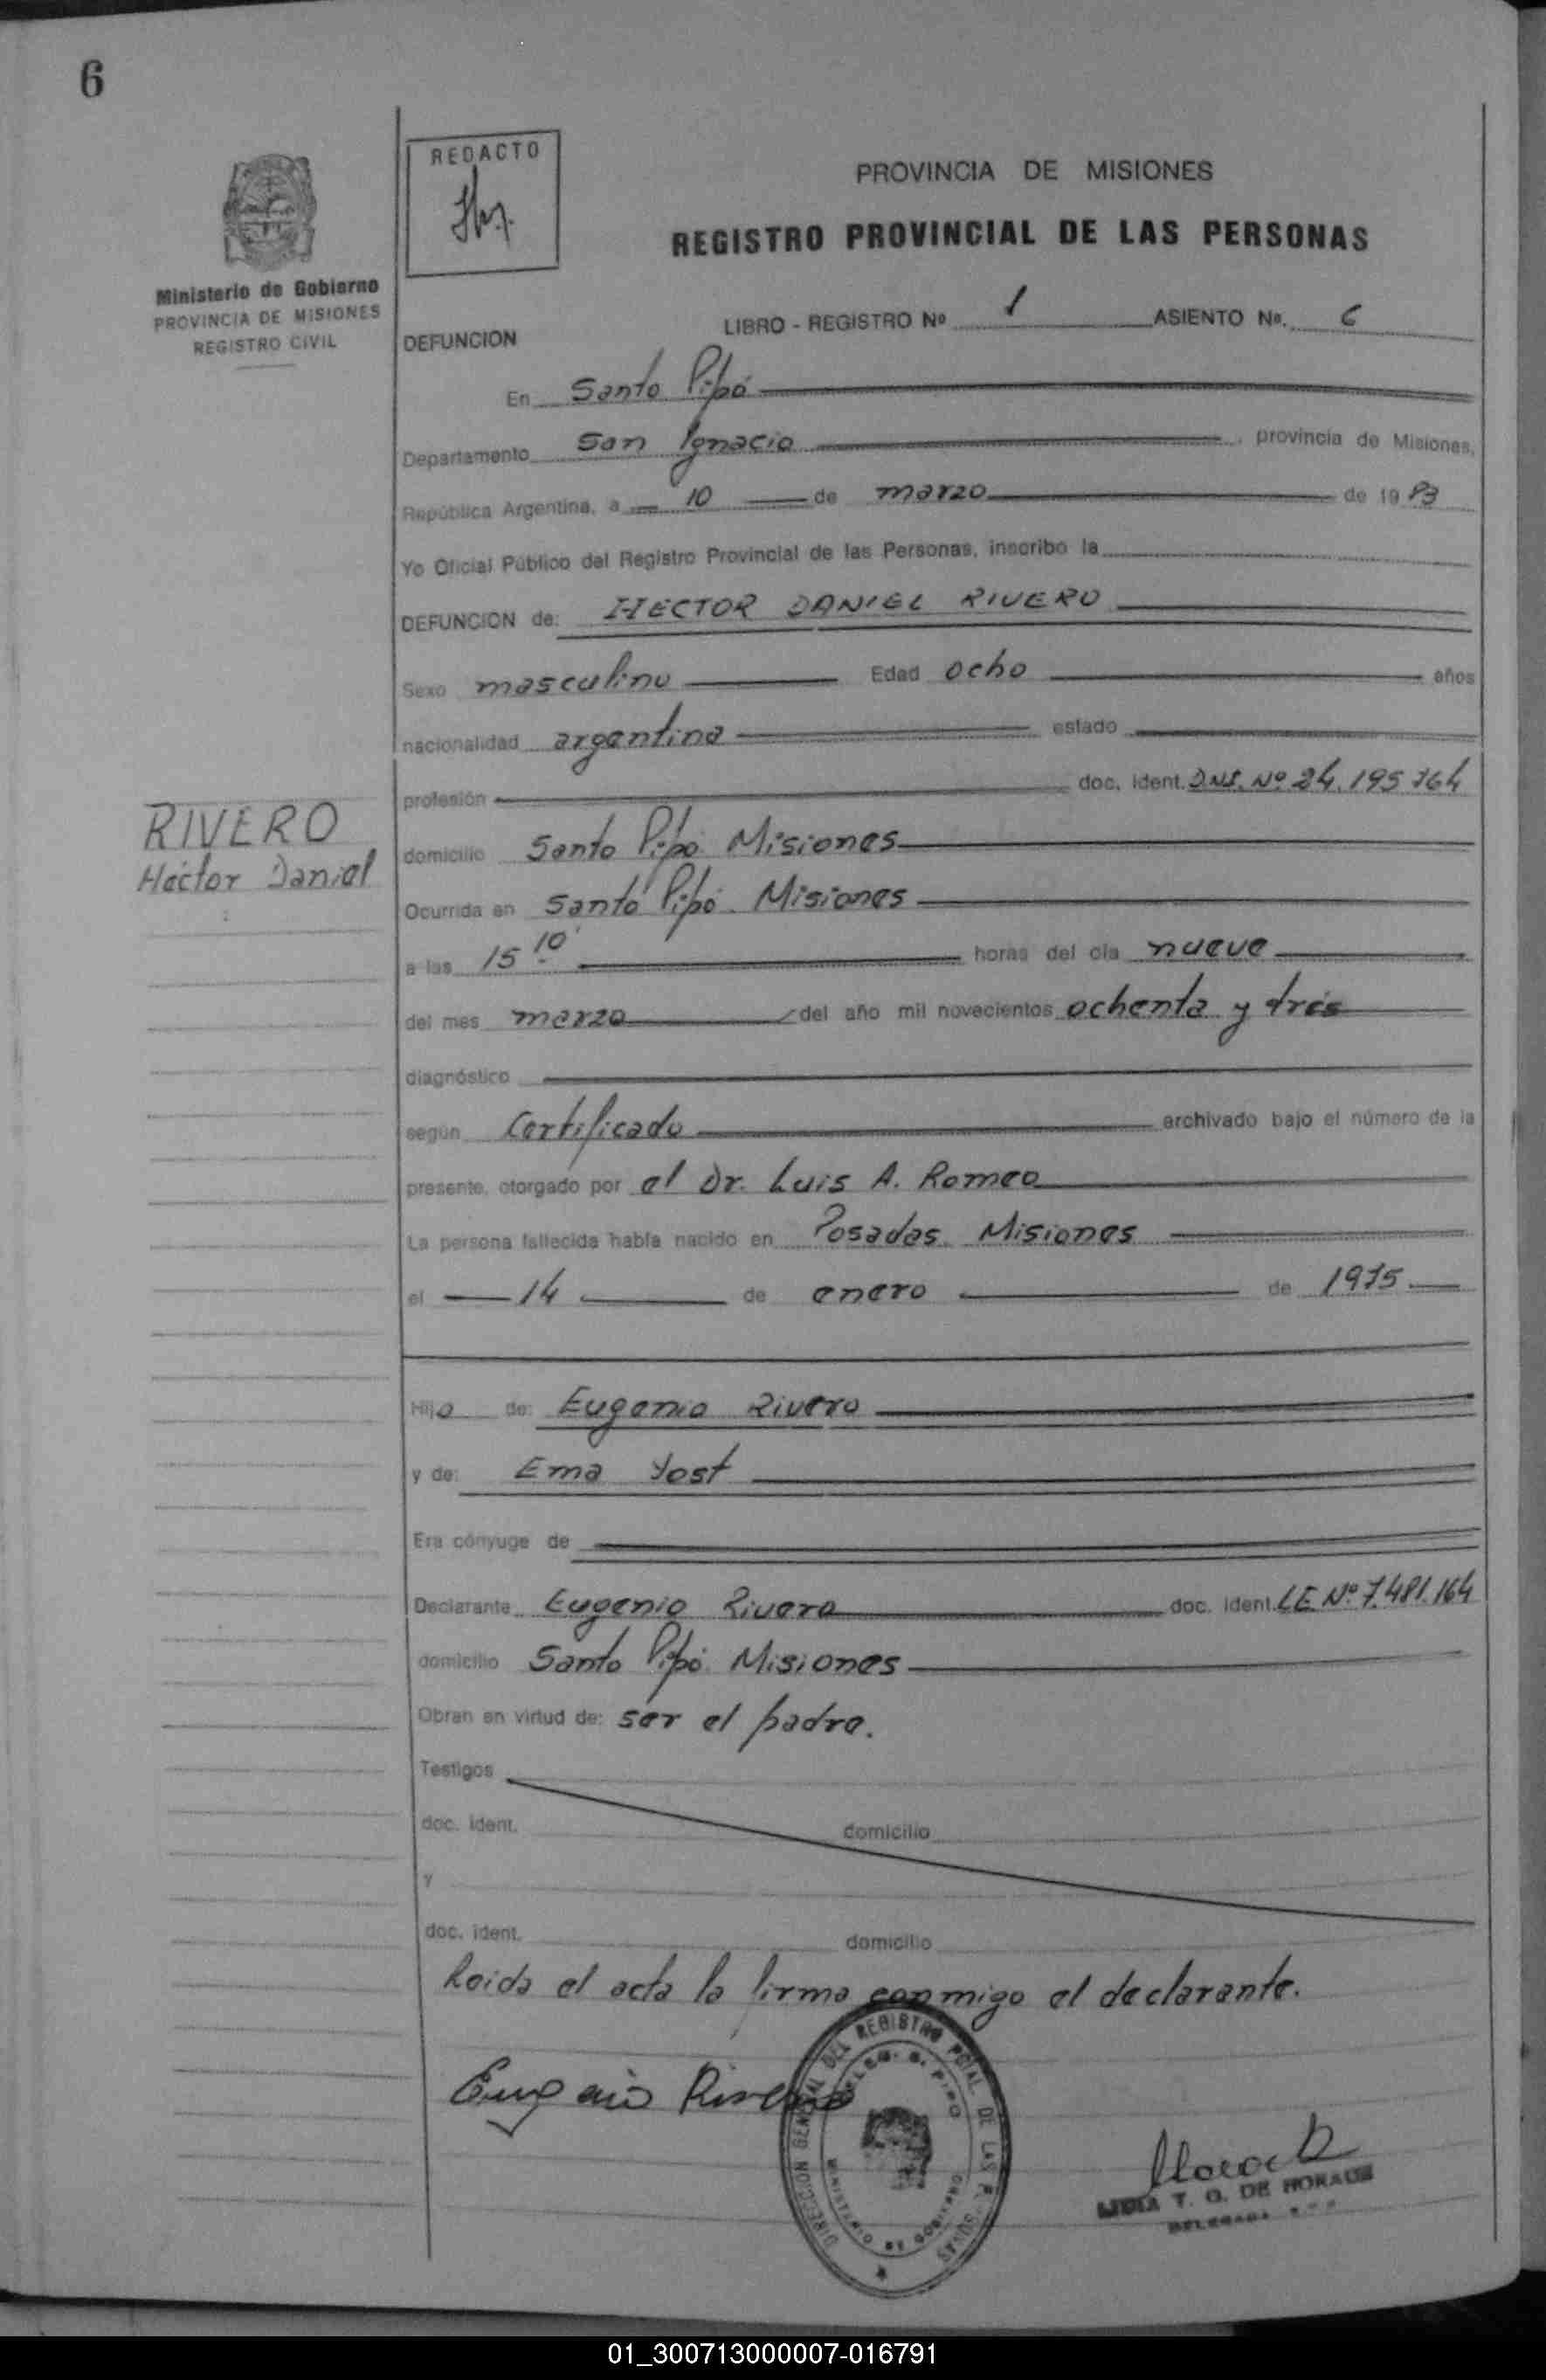 6
REDACTO
PROVINCIA DE MISIONES
REGISTRO PROVINCIAL DE LAS PERSONAS
Ministerio de Gobierno
PROVINCIA DE MISIONES
REGISTRO CIVIL
LIBRO - REGISTRO Nº 1 ASIENTO Nº. 6
DEFUNCION
En Santo Pipó
Departamento San Ignacio, provincia de Misiones,
República Argentina, a 10 de marzo de 1983
Yo Oficial Público del Registro Provincial de las Personas, inscribo la
DEFUNCION de: HECTOR DANIEL RIVERO
Sexo masculino Edad ocho años
nacionalidad argentina estado
profesión doc. ident. D.N.I. Nº 24.195.764
RIVERO
Héctor Daniel
domicilio Santo Pipó Misiones
Ocurrida en Santo Pipó. Misiones
a las 15 10' horas del día nueve
del mes marzo del año mil novecientos ochenta y tres
diagnóstico
según Certificado archivado bajo el número de la
presente, otorgado por el Dr. Luis A. Romeo
La persona fallecida había nacido en Posadas. Misiones
el 14 de enero de 1975
Hijo de: Eugenio Rivero
y de: Ema Yost
Era cónyuge de
Declarante Eugenio Rivero doc. ident. L.E. Nº 7.481.164
domicilio Santo Pipó. Misiones
Obran en virtud de: ser el padre.
Testigos
doc. ident. domicilio
y
doc. ident. domicilio
Leida el acta la firma conmigo el declarante.
Eugenio Rivero
DIRECCION GENERAL DEL REGISTRO PCIAL. DE LAS PERSONAS
T. G. DE
01_300713000007-016791